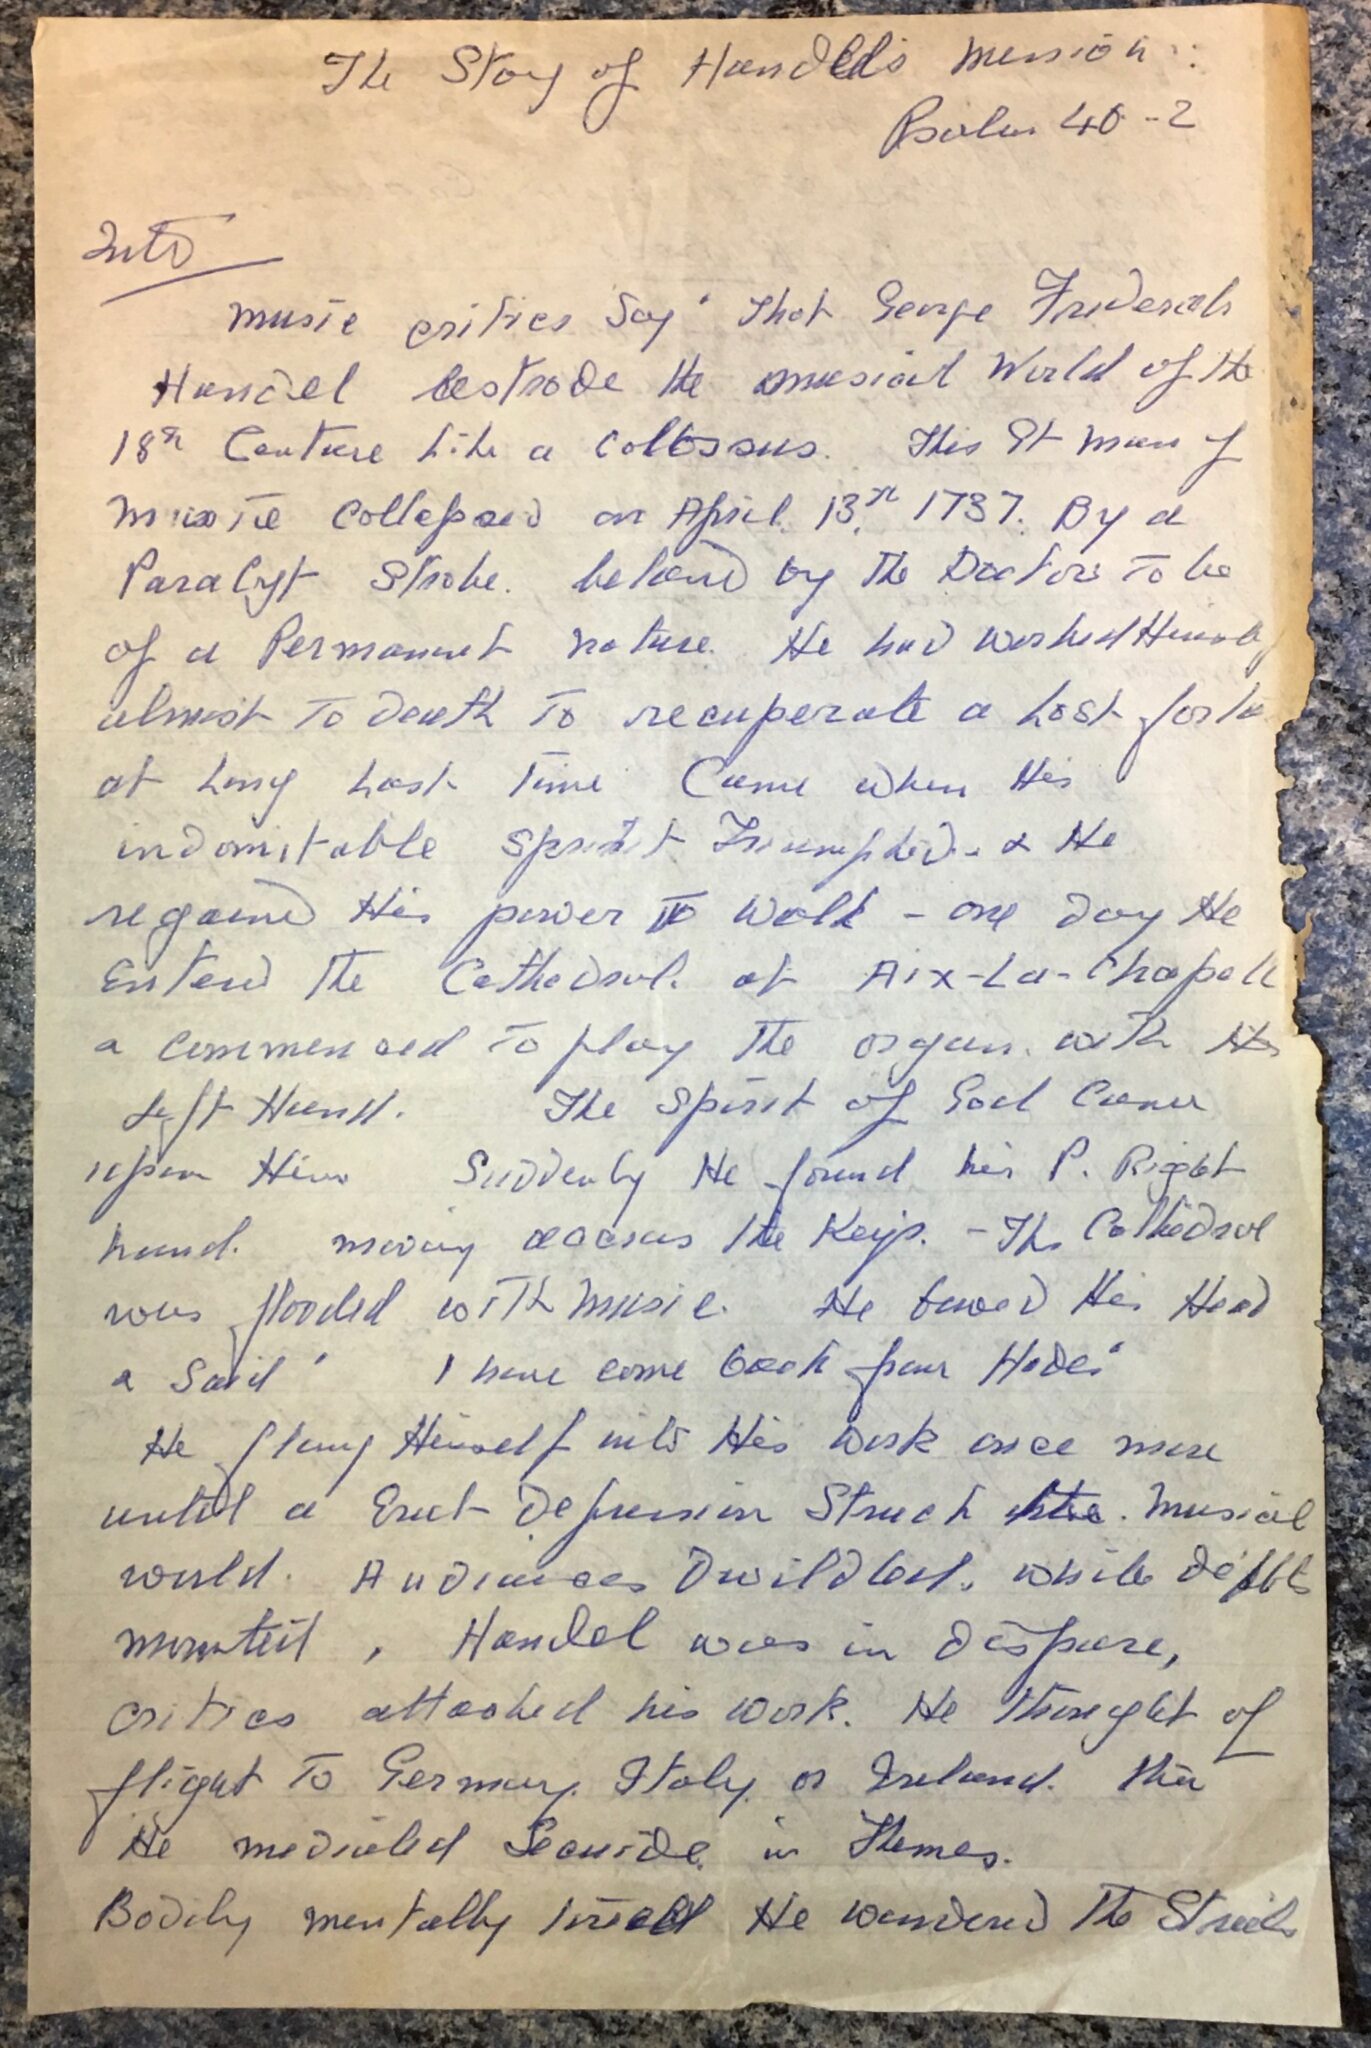 The Story of Handel's Messiah :
Psalm 40-2
Into
Music critics Say' That George Frederich
Handel bestrode the musical World of the
18th Centure Like a Collossus. This Gt man of
Music Collapsed on April. 13th 1737. By a
Paralyt Stroke. belived by The Doctors To be
of a Permanent nature. He had worked Himself
almost To death To recuperate a Lost
at Long Last Time Came when His
indomitable Spirit Triumphed. & He
regained His power To Walk - one day He
Entered The Cathedral. at Aix-La-Chapell
& commenced To play The organ. with His
Left Hand. The Spirit of God Came
upon Him Suddenly He found his P. Right
hand. moving accross the Keys. - The Cathedral
was flooded with music. He bowed His Head
& Said ' I have come back from Hades'
He flung Himself into His work once more
until a Great Depression Struck the. Musical
world. Audiances Dwildled. while debts
mounted, Handel was in dispare,
critics attacked his work. He Thought of
flight To Germany. Italy. or Ireland. then
He mediated Secuide. in Themes.
Bodily mentally tired He wandered The Streets